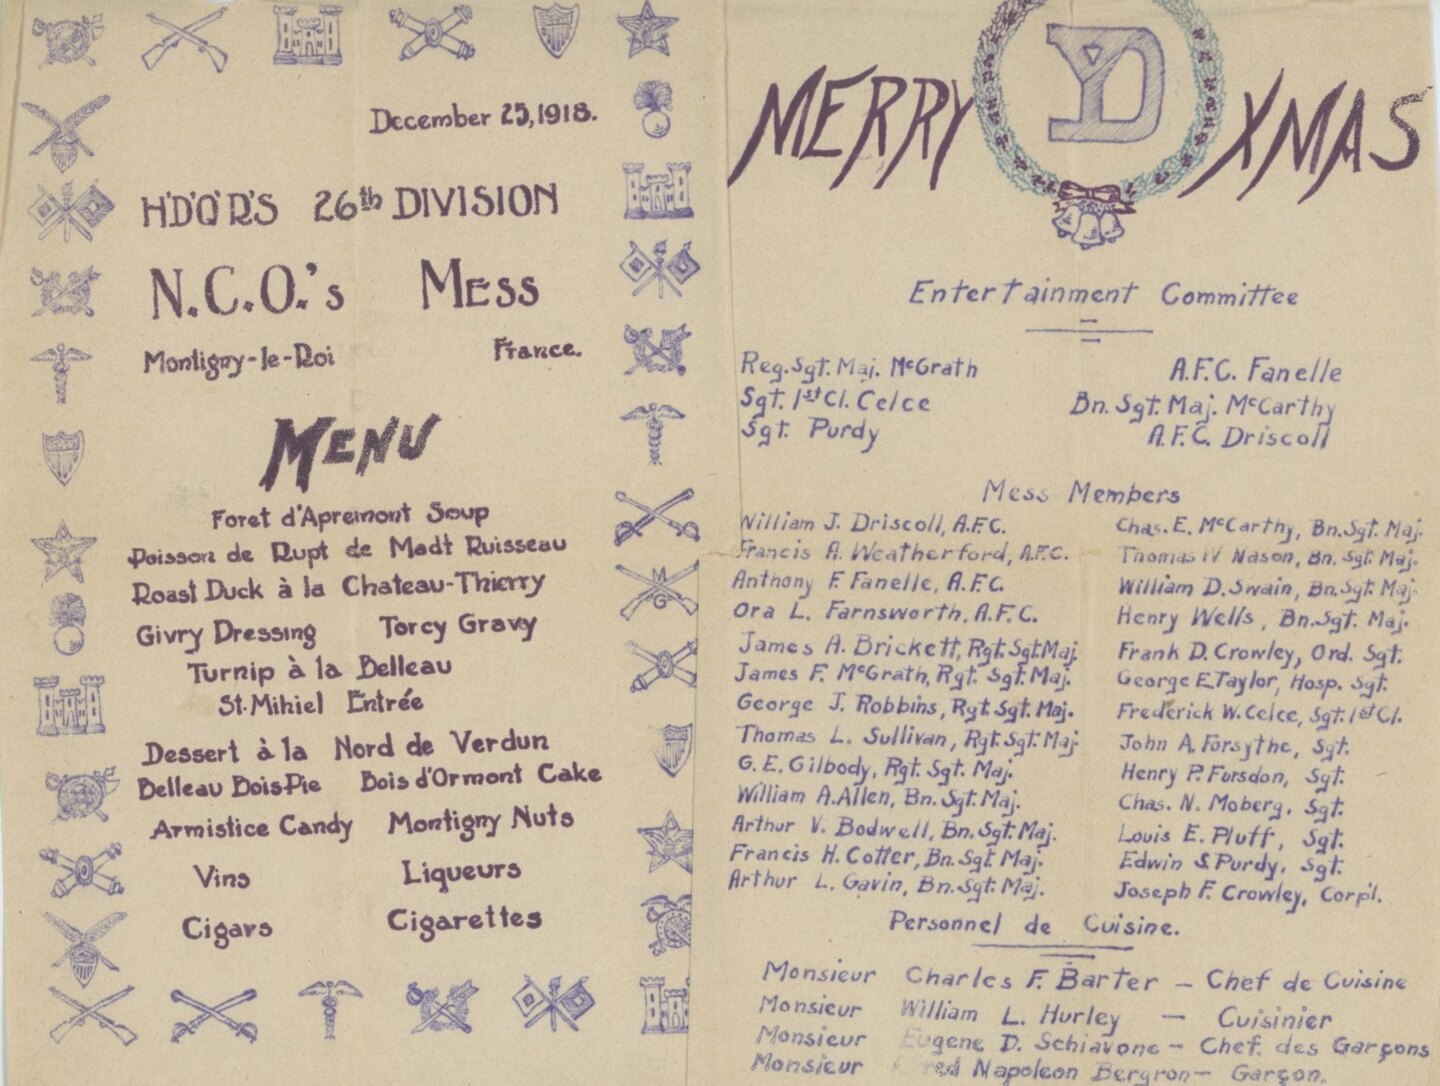 December 25, 1918.
H'D'Q'R'S 26th DIVISION
N.C.O.'s MESS
Montigny-le-Roi France.
MENU
Foret d'Apremont Soup
Poisson de Rupt de Madt Ruisseau
Roast Duck à la Chateau-Thierry
Givry Dressing Torcy Gravy
Turnip à la Belleau
St. Mihiel Entrée
Dessert à la Nord de Verdun
Belleau Bois Pie Bois d'Ormont Cake
Armistice Candy Montigny Nuts
Vins Liqueurs
Cigars Cigarettes
MG
MERRY YD XMAS
Entertainment Committee
Reg. Sgt. Maj. McGrath A.F.C. Fanelle
Sgt. 1st Cl. Celce Bn. Sgt. Maj. McCarthy
Sgt. Purdy A.F.C. Driscoll
Mess Members
William J. Driscoll, A.F.C.
Francis A. Weatherford, A.F.C.
Anthony F. Fanelle, A.F.C.
Ora L. Farnsworth, A.F.C.
James A. Brickett, Rgt. Sgt. Maj.
James F. McGrath, Rgt. Sgt. Maj.
George J. Robbins, Rgt. Sgt. Maj.
Thomas L. Sullivan, Rgt. Sgt. Maj.
G. E. Gilbody, Rgt. Sgt. Maj.
William A. Allen, Bn. Sgt. Maj.
Arthur V. Bodwell, Bn. Sgt. Maj.
Francis H. Cotter, Bn. Sgt. Maj.
Arthur L. Gavin, Bn. Sgt. Maj.
Chas. E. McCarthy, Bn. Sgt. Maj.
Thomas W. Nason, Bn. Sgt. Maj.
William D. Swain, Bn. Sgt. Maj.
Henry Wells, Bn. Sgt. Maj.
Frank D. Crowley, Ord. Sgt.
George E. Taylor, Hosp. Sgt.
Frederick W. Celce, Sgt. 1st Cl.
John A. Forsythe, Sgt.
Henry P. Fursdon, Sgt.
Chas. N. Moberg, Sgt.
Louis E. Pluff, Sgt.
Edwin S. Purdy, Sgt.
Joseph F. Crowley, Corp'l.
Personnel de Cuisine.
Monsieur Charles F. Barter — Chef de Cuisine
Monsieur William L. Hurley — Cuisinier
Monsieur Eugene D. Schiavone — Chef des Garçons
Monsieur Napoleon Bergron — Garçon.